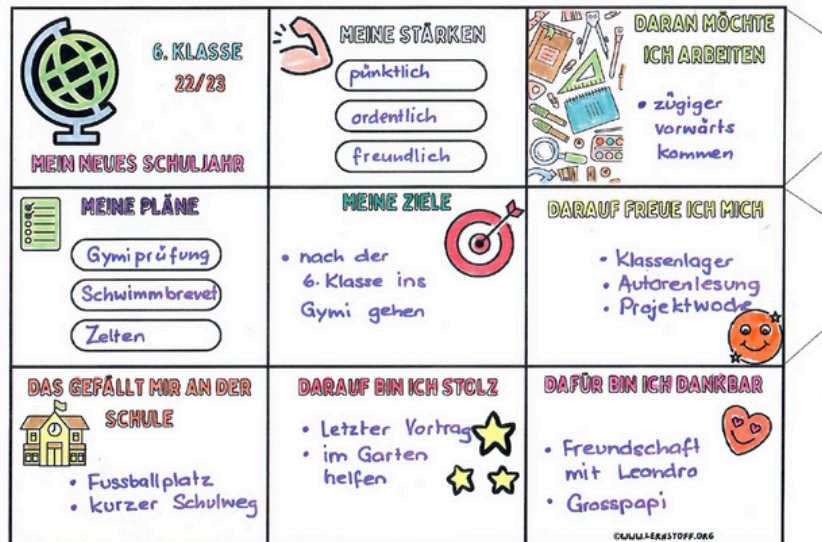 6. KLASSE
22/23
MEIN NEUES SCHULJAHR
MEINE STÄRKEN
pünktlich
ordentlich
freundlich
DARAN MÖCHTE
ICH ARBEITEN
• zügiger
vorwärts
kommen
MEINE PLÄNE
Gymiprüfung
Schwimmbrevet
Zelten
MEINE ZIELE
• nach der
6. Klasse ins
Gymi gehen
DARAUF FREUE ICH MICH
• Klassenlager
• Autorenlesung
• Projektwoche
DAS GEFÄLLT MIR AN DER
SCHULE
• Fussballplatz
• kurzer Schulweg
DARAUF BIN ICH STOLZ
• Letzter Vortrag
• im Garten
helfen
DAFÜR BIN ICH DANKBAR
• Freundschaft
mit Leandro
• Grosspapi
©WWW.LERNSTOFF.ORG